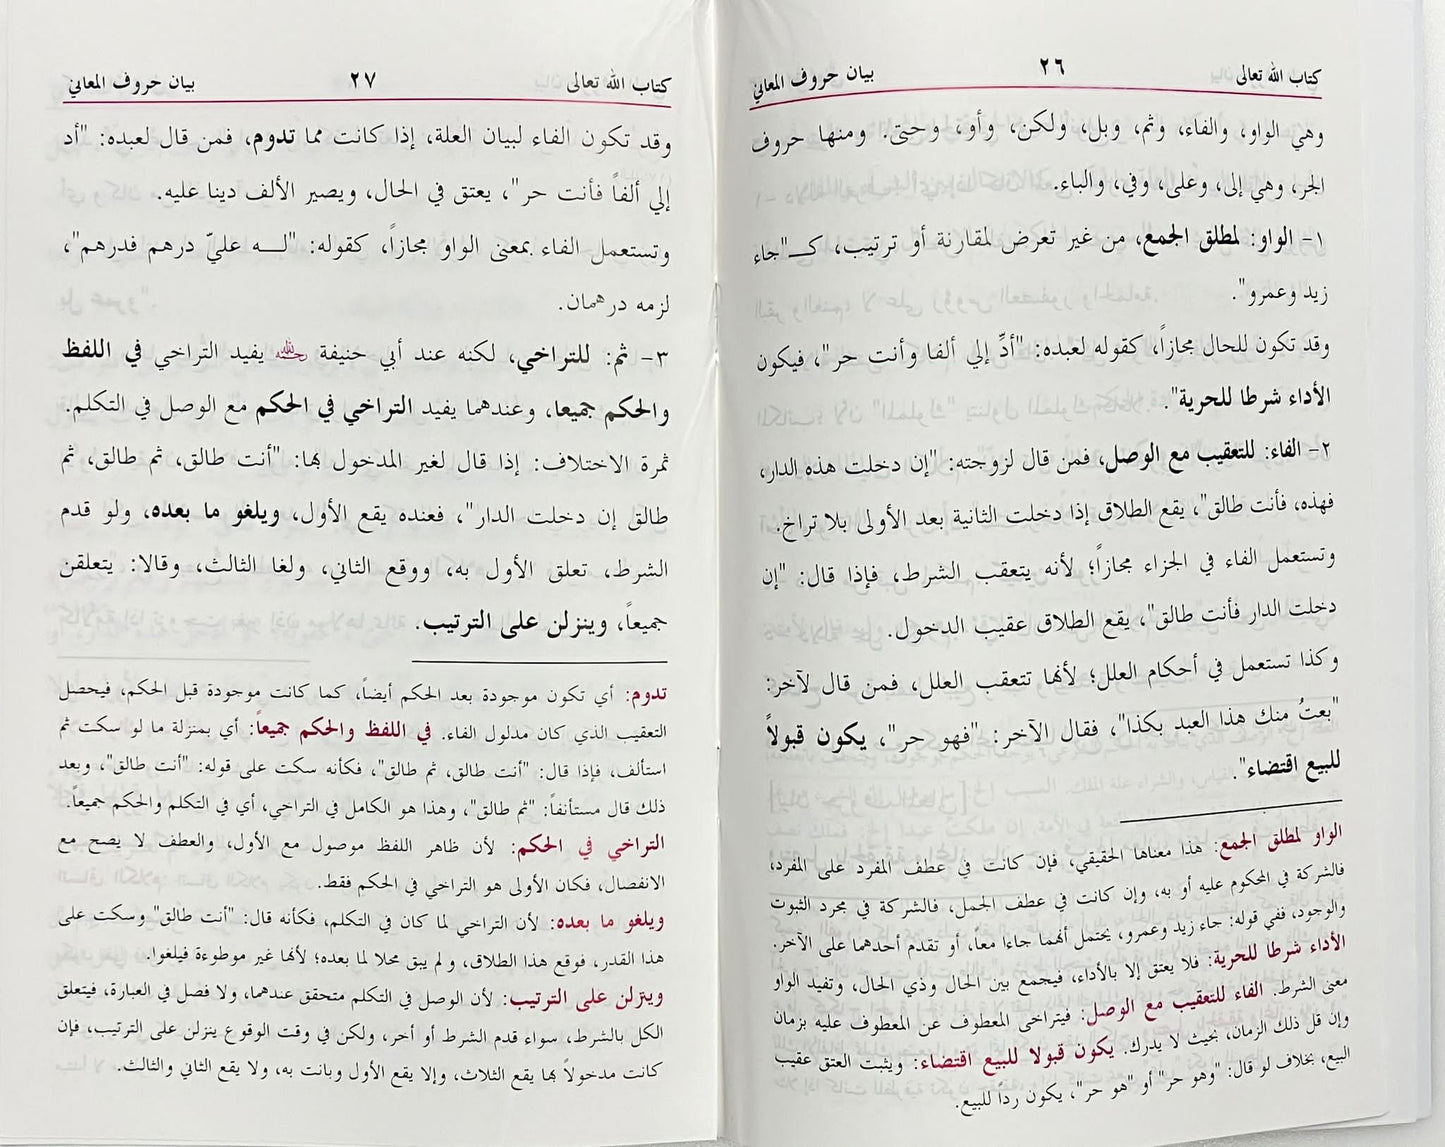 كتاب الله تعالى ٢٦ بيان حروف المعاني
وهي الواو، والفاء، وثم، وبل، ولكن، وأو، وحتى. ومنها حروف
الجر، وهي إلى، وعلى، وفي، والباء.
١- الواو: لمطلق الجمع، من غير تعرض لمقارنة أو ترتيب، كـ"جاء
زيد وعمرو".
وقد تكون للحال مجازاً، كقوله لعبده: "أدِّ إلي ألفا وأنت حر"، فيكون
الأداء شرطا للحرية".
٢- الفاء: للتعقيب مع الوصل، فمن قال لزوجته: "إن دخلت هذه الدار،
فهذه، فأنت طالق"، يقع الطلاق إذا دخلت الثانية بعد الأولى بلا تراخ.
وتستعمل الفاء في الجزاء مجازاً؛ لأنه يتعقب الشرط، فإذا قال: "إن
دخلت الدار فأنت طالق"، يقع الطلاق عقيب الدخول.
وكذا تستعمل في أحكام العلل؛ لأنها تتعقب العلل، فمن قال لآخر:
"بعتُ منك هذا العبد بكذا"، فقال الآخر: "فهو حر"، يكون قبولاً
للبيع اقتضاء".
الواو لمطلق الجمع: هذا معناها الحقيقي، فإن كانت في عطف المفرد على المفرد،
فالشركة في المحكوم عليه أو به، وإن كانت في عطف الجمل، فالشركة في مجرد الثبوت
والوجود، ففي قوله: جاء زيد وعمرو، يحتمل أنهما جاءا معاً، أو تقدم أحدهما على الآخر.
الأداء شرطا للحرية: فلا يعتق إلا بالأداء، فيجمع بين الحال وذي الحال، وتفيد الواو
معنى الشرط. الفاء للتعقيب مع الوصل: فيتراخى المعطوف عن المعطوف عليه بزمان
وإن قل ذلك الزمان، بحيث لا يدرك. يكون قبولا للبيع اقتضاء: ويثبت العتق عقيب
البيع، بخلاف لو قال: "وهو حر" أو "هو حر"، يكون رداً للبيع.
كتاب الله تعالى ٢٧ بيان حروف المعاني
وقد تكون الفاء لبيان العلة، إذا كانت مما تدوم، فمن قال لعبده: "أد
إلي ألفاً فأنت حر"، يعتق في الحال، ويصير الألف دينا عليه.
وتستعمل الفاء بمعنى الواو مجازاً، كقوله: "لـه عليّ درهم فدرهم"،
لزمه درهمان.
٣- ثم: للتراخي، لكنه عند أبي حنيفة رحمه الله يفيد التراخي في اللفظ
والحكم جميعا، وعندهما يفيد التراخي في الحكم مع الوصل في التكلم.
ثمرة الاختلاف: إذا قال لغير المدخول بها: "أنت طالق، ثم طالق، ثم
طالق إن دخلت الدار"، فعنده يقع الأول، ويلغو ما بعده، ولو قدم
الشرط، تعلق الأول به، ووقع الثاني، ولغا الثالث، وقالا: يتعلقن
جميعاً، وينزلن على الترتيب.
تدوم: أي تكون موجودة بعد الحكم أيضاً، كما كانت موجودة قبل الحكم، فيحصل
التعقيب الذي كان مدلول الفاء. في اللفظ والحكم جميعاً: أي بمنزلة ما لو سكت ثم
استألف، فإذا قال: "أنت طالق، ثم طالق"، فكأنه سكت على قوله: "أنت طالق"، وبعد
ذلك قال مستأنفاً: "ثم طالق"، وهذا هو الكامل في التراخي، أي في التكلم والحكم جميعاً.
التراخي في الحكم: لأن ظاهر اللفظ موصول مع الأول، والعطف لا يصح مع
الانفصال، فكان الأولى هو التراخي في الحكم فقط.
ويلغو ما بعده: لأن التراخي لما كان في التكلم، فكأنه قال: "أنت طالق" وسكت على
هذا القدر، فوقع هذا الطلاق، ولم يبق محلا لما بعده؛ لأنها غير موطوءة فيلغوا.
وينزلن على الترتيب: لأن الوصل في التكلم متحقق عندهما، ولا فصل في العبارة، فيتعلق
الكل بالشرط، سواء قدم الشرط أو أخر، ولكن في وقت الوقوع ينزلن على الترتيب، فإن
كانت مدخولاً بها يقع الثلاث، وإلا يقع الأول وبانت به، ولا يقع الثاني والثالث.